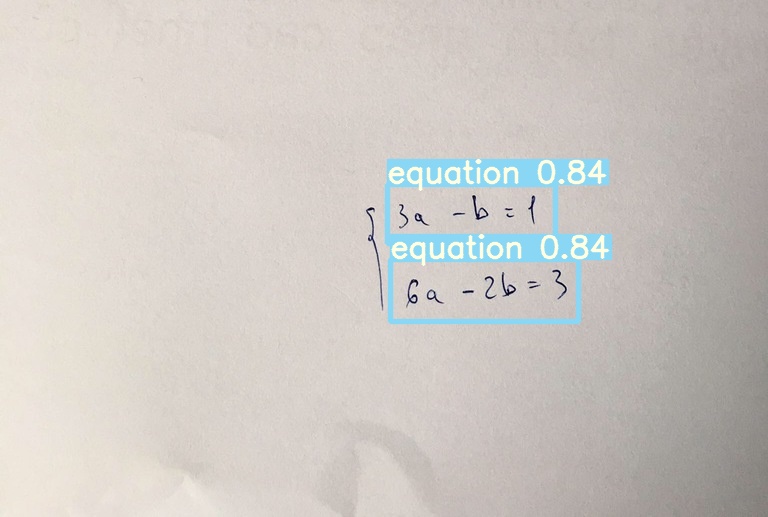 equation 0.84
3a - b = 1
equation 0.84
6a - 2b = 3